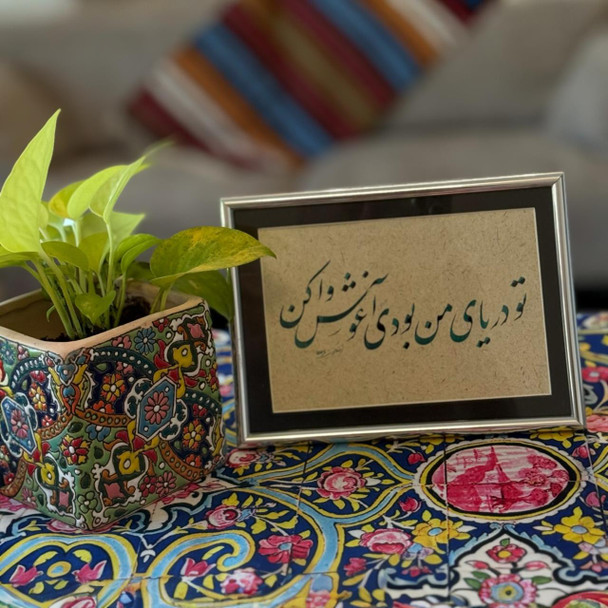 تو دریای من بودی آغوش وا کن